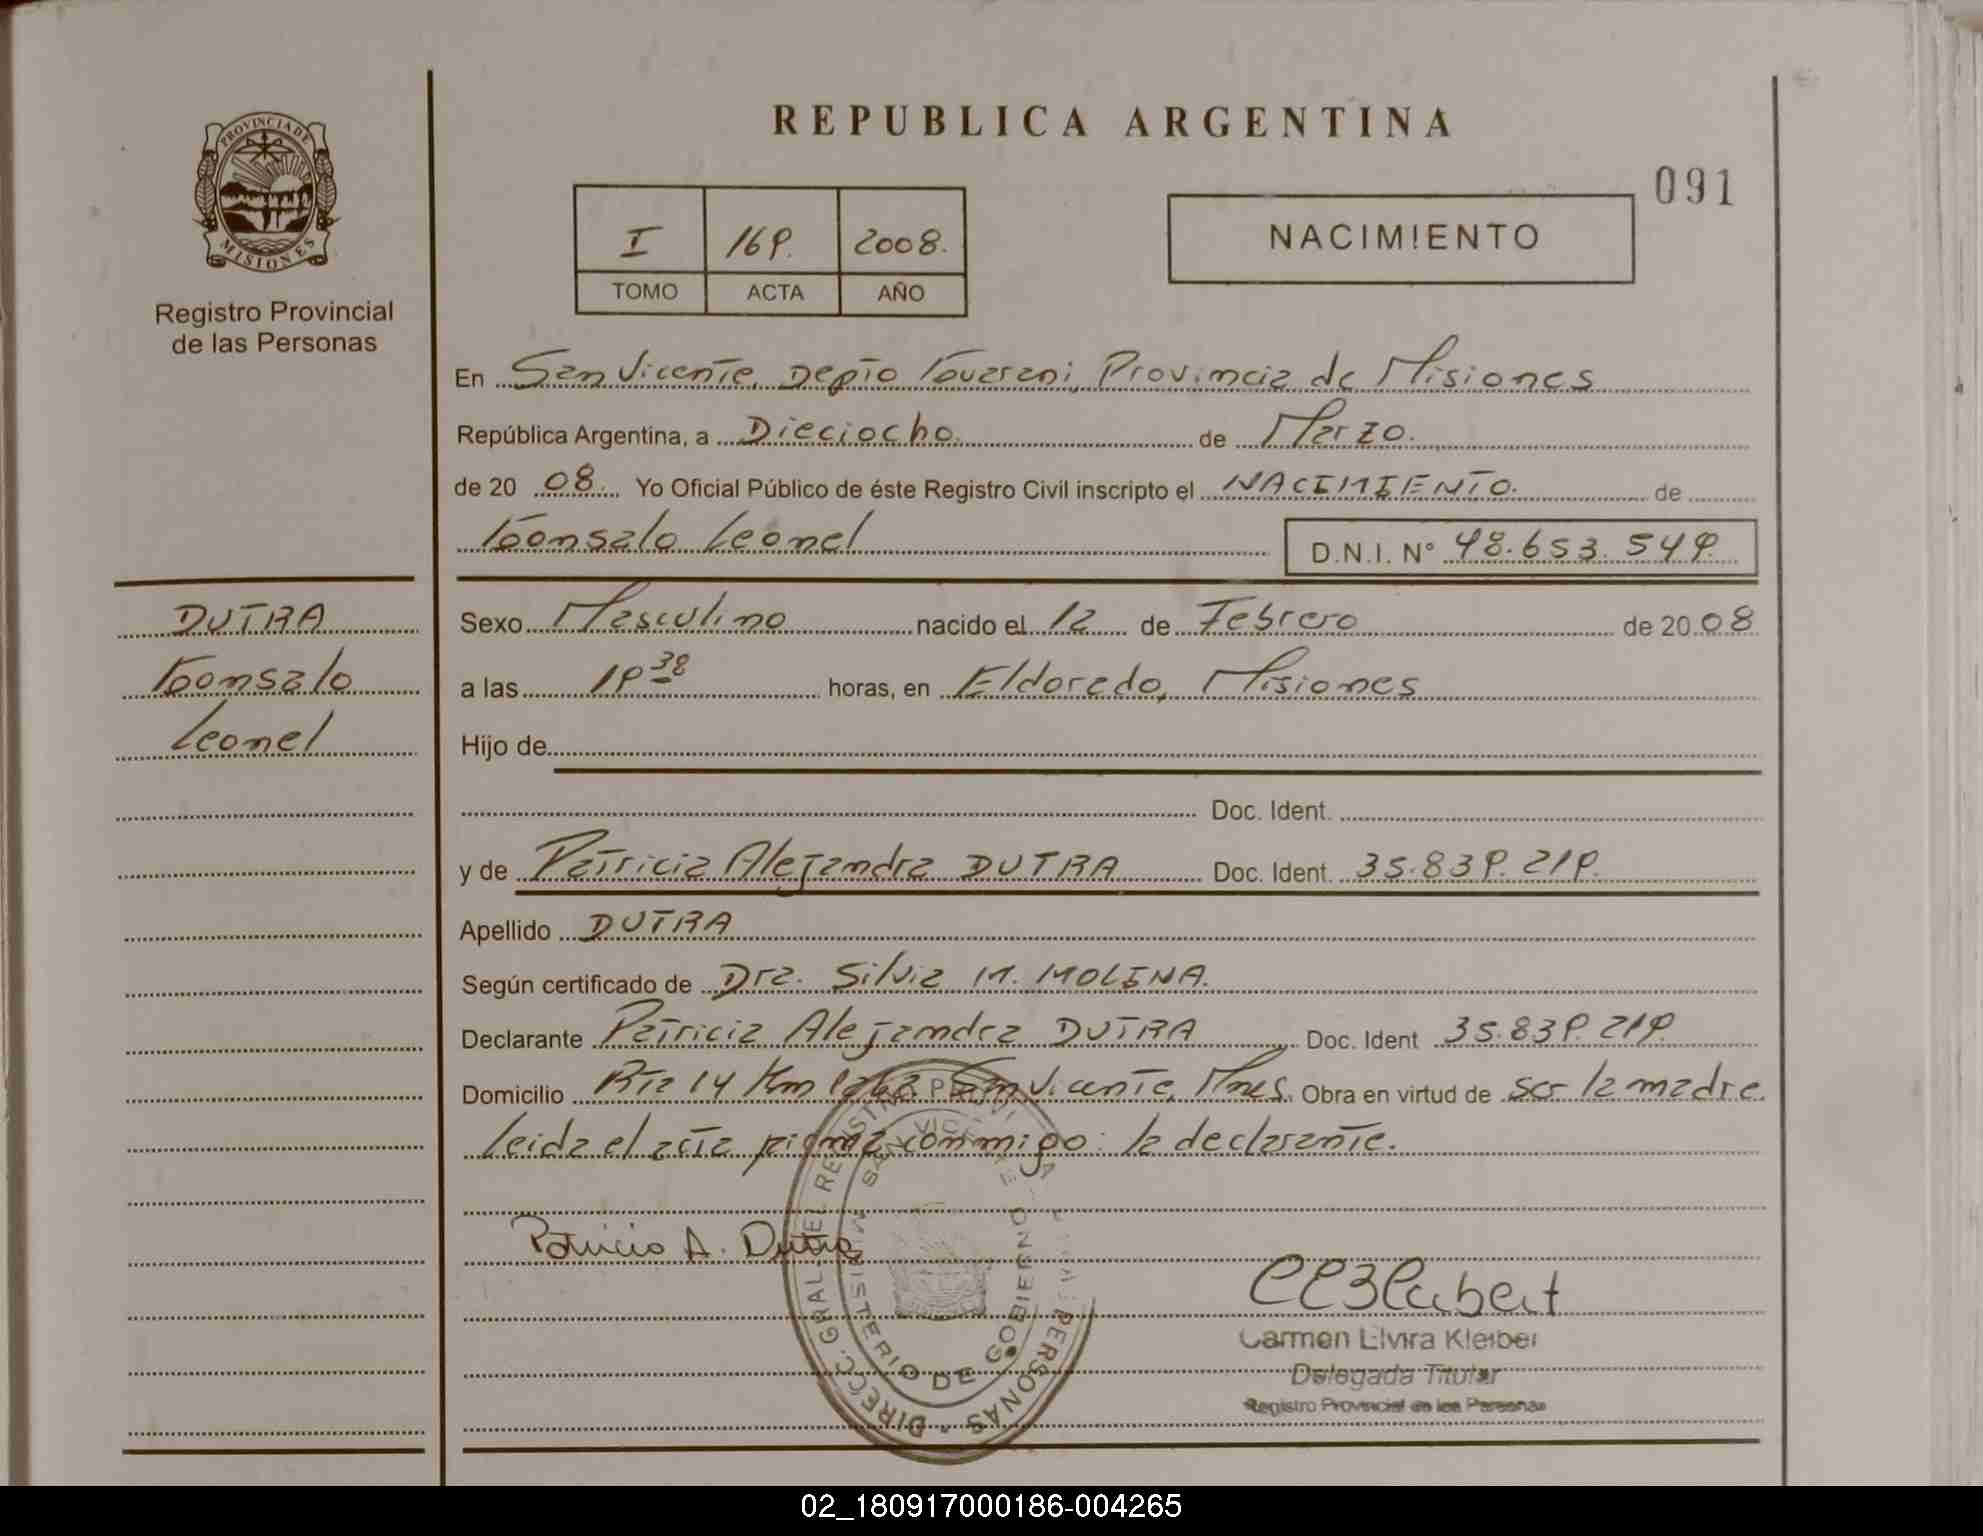 REPUBLICA ARGENTINA
091
PROVINCIA DE
MISIONES
Registro Provincial
de las Personas
I 169. 2008.
TOMO ACTA AÑO
NACIMIENTO
En San Vicente, Depto Guarani, Provincia de Misiones
República Argentina, a Dieciocho. de Marzo.
de 20 08. Yo Oficial Público de éste Registro Civil inscripto el NACIMIENTO. de
Gonsalo Leonel D.N.I. N° 48.653.549.
DUTRA
Gonsalo
Leonel
Sexo Masculino nacido el 12 de Febrero de 20 08
a las 19 38 horas, en Eldorado, Misiones
Hijo de
Doc. Ident.
y de Patricia Alejandra DUTRA Doc. Ident. 35.839.219.
Apellido DUTRA
Según certificado de Dra. Silvia M. MOLINA.
Declarante Patricia Alejandra DUTRA Doc. Ident 35.839.219.
Domicilio Rta 14 Km San Vicente, Mnes. Obra en virtud de ser la madre.
Leida el acta conmigo: la declarante.
Patricia A. Dutra
DIRECC. GRAL. DEL REGISTRO PERSONAS
SAN VICENTE
MINISTERIO DE GOBIERNO
Carmen Elvira Kleiber
Delegada Titular
Registro Provincial de las Personas
02_180917000186-004265